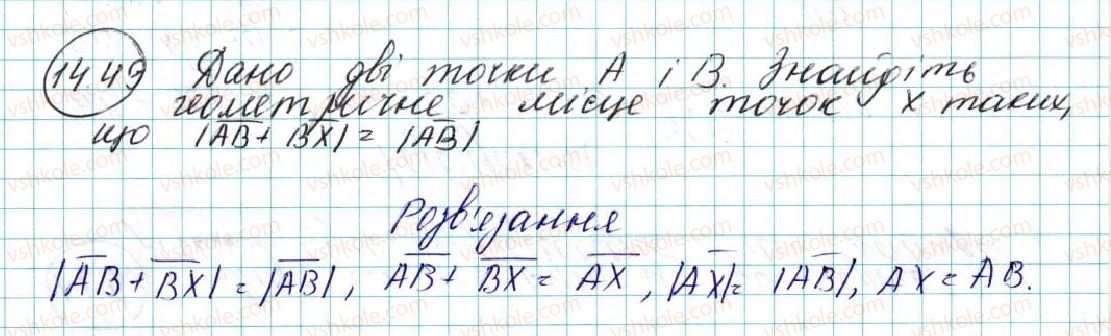 14.49 Дано дві точки A і B. Знайдіть
геометричне місце точок X таких,
що |AB + BX| = |AB|
Розв'язання
|AB + BX| = |AB|, AB + BX = AX, |AX| = |AB|, AX = AB.